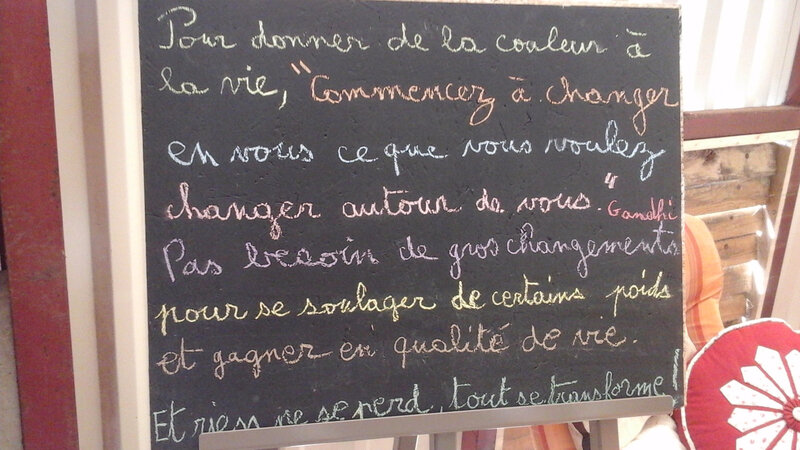 Pour donner de la couleur à
la vie, "Commencez à changer
en vous ce que vous voulez
changer autour de vous." Gandhi
Pas besoin de gros changements
pour se soulager de certains poids
et gagner en qualité de vie.
Et rien ne se perd, tout se transforme !